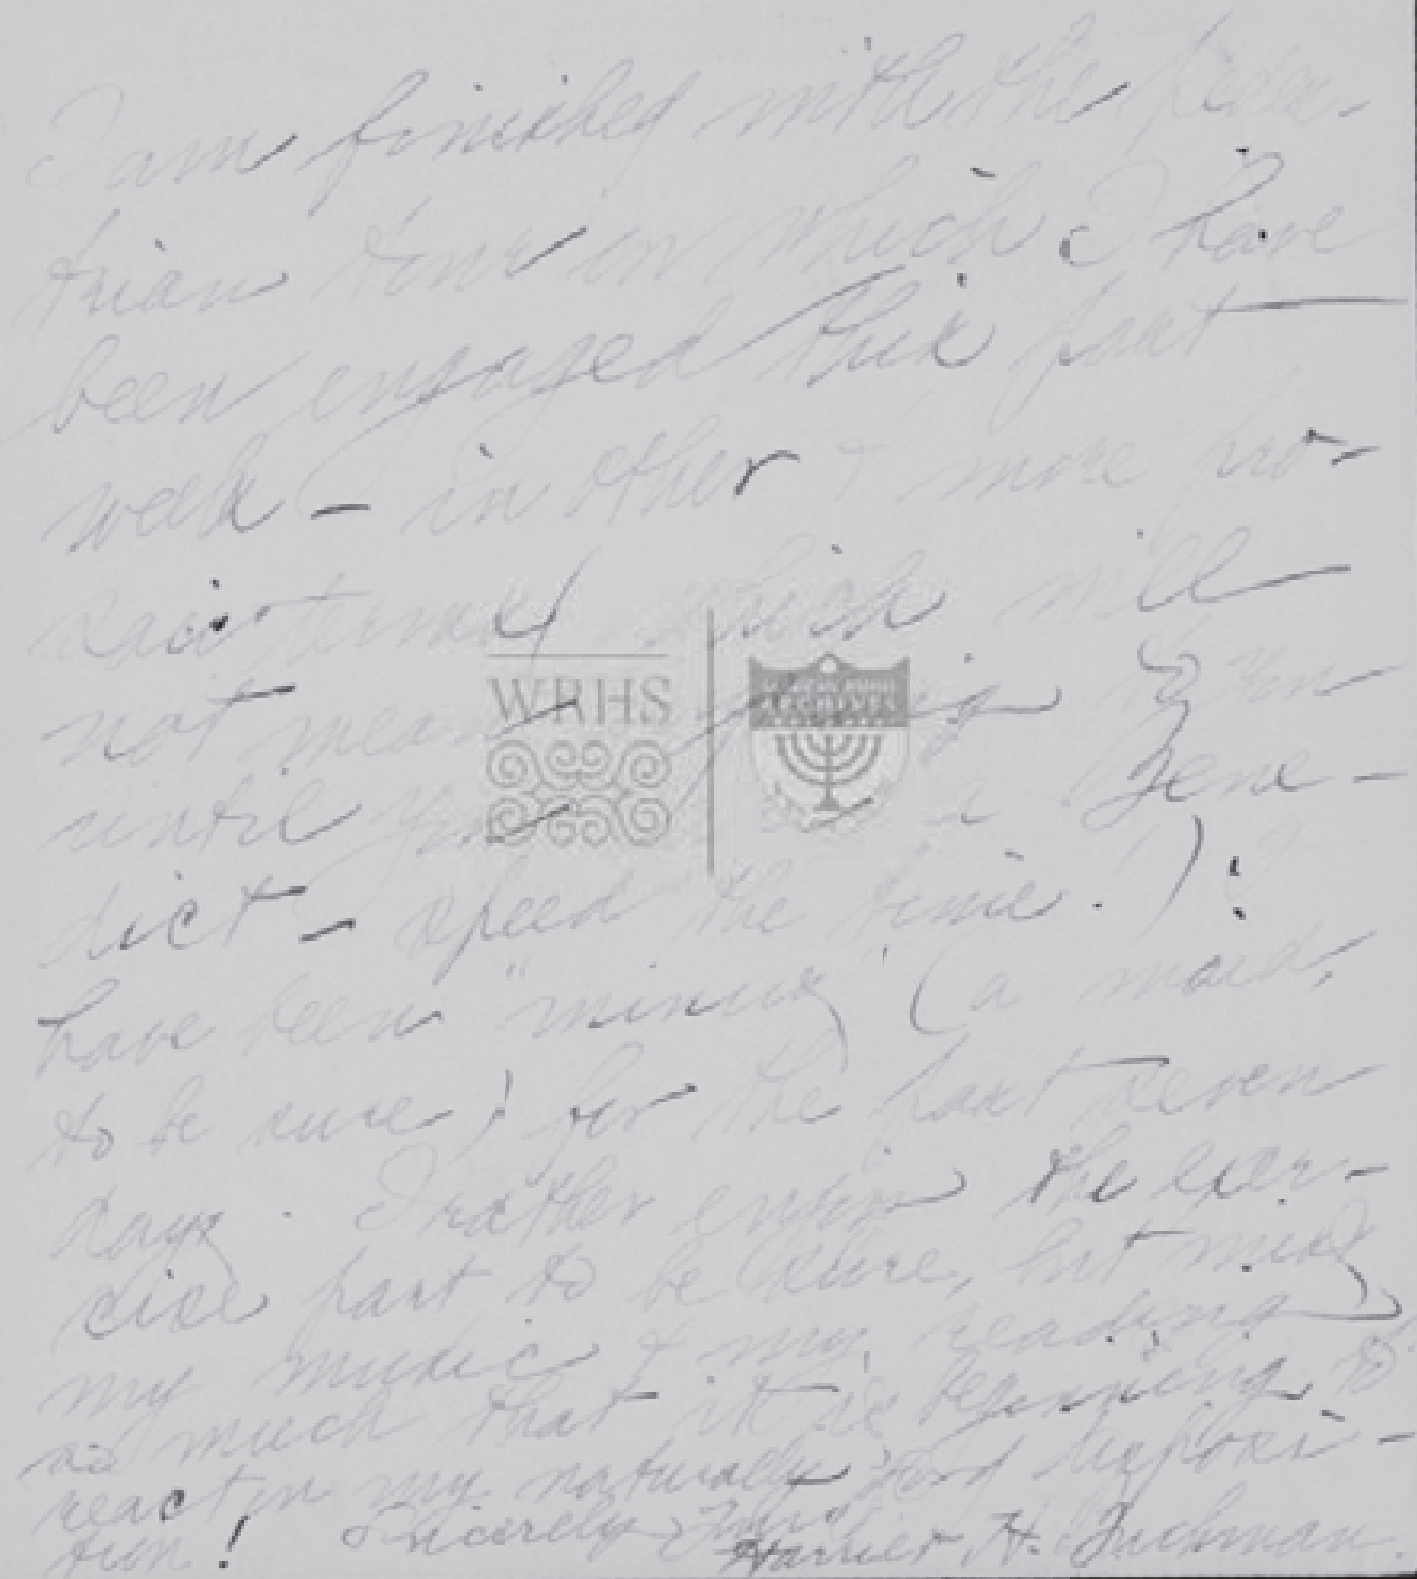 I am finished with the pedes-
trian tour in which I have
been engaged this past
week – in other & more pro-
saic terms (which will
not mean to you
until you a Bene-
dict – speed the time.) :
have been "minus" (a maid,
to be sure) for the last seven
days. I rather enjoy the exer-
cise part to be sure, but miss
my music & my reading
so much that it is beginning to
react on my naturally good disposi-
tion! Sincerely Yours
Harriet H.
WRHS
AMERICAN JEWISH
ARCHIVES